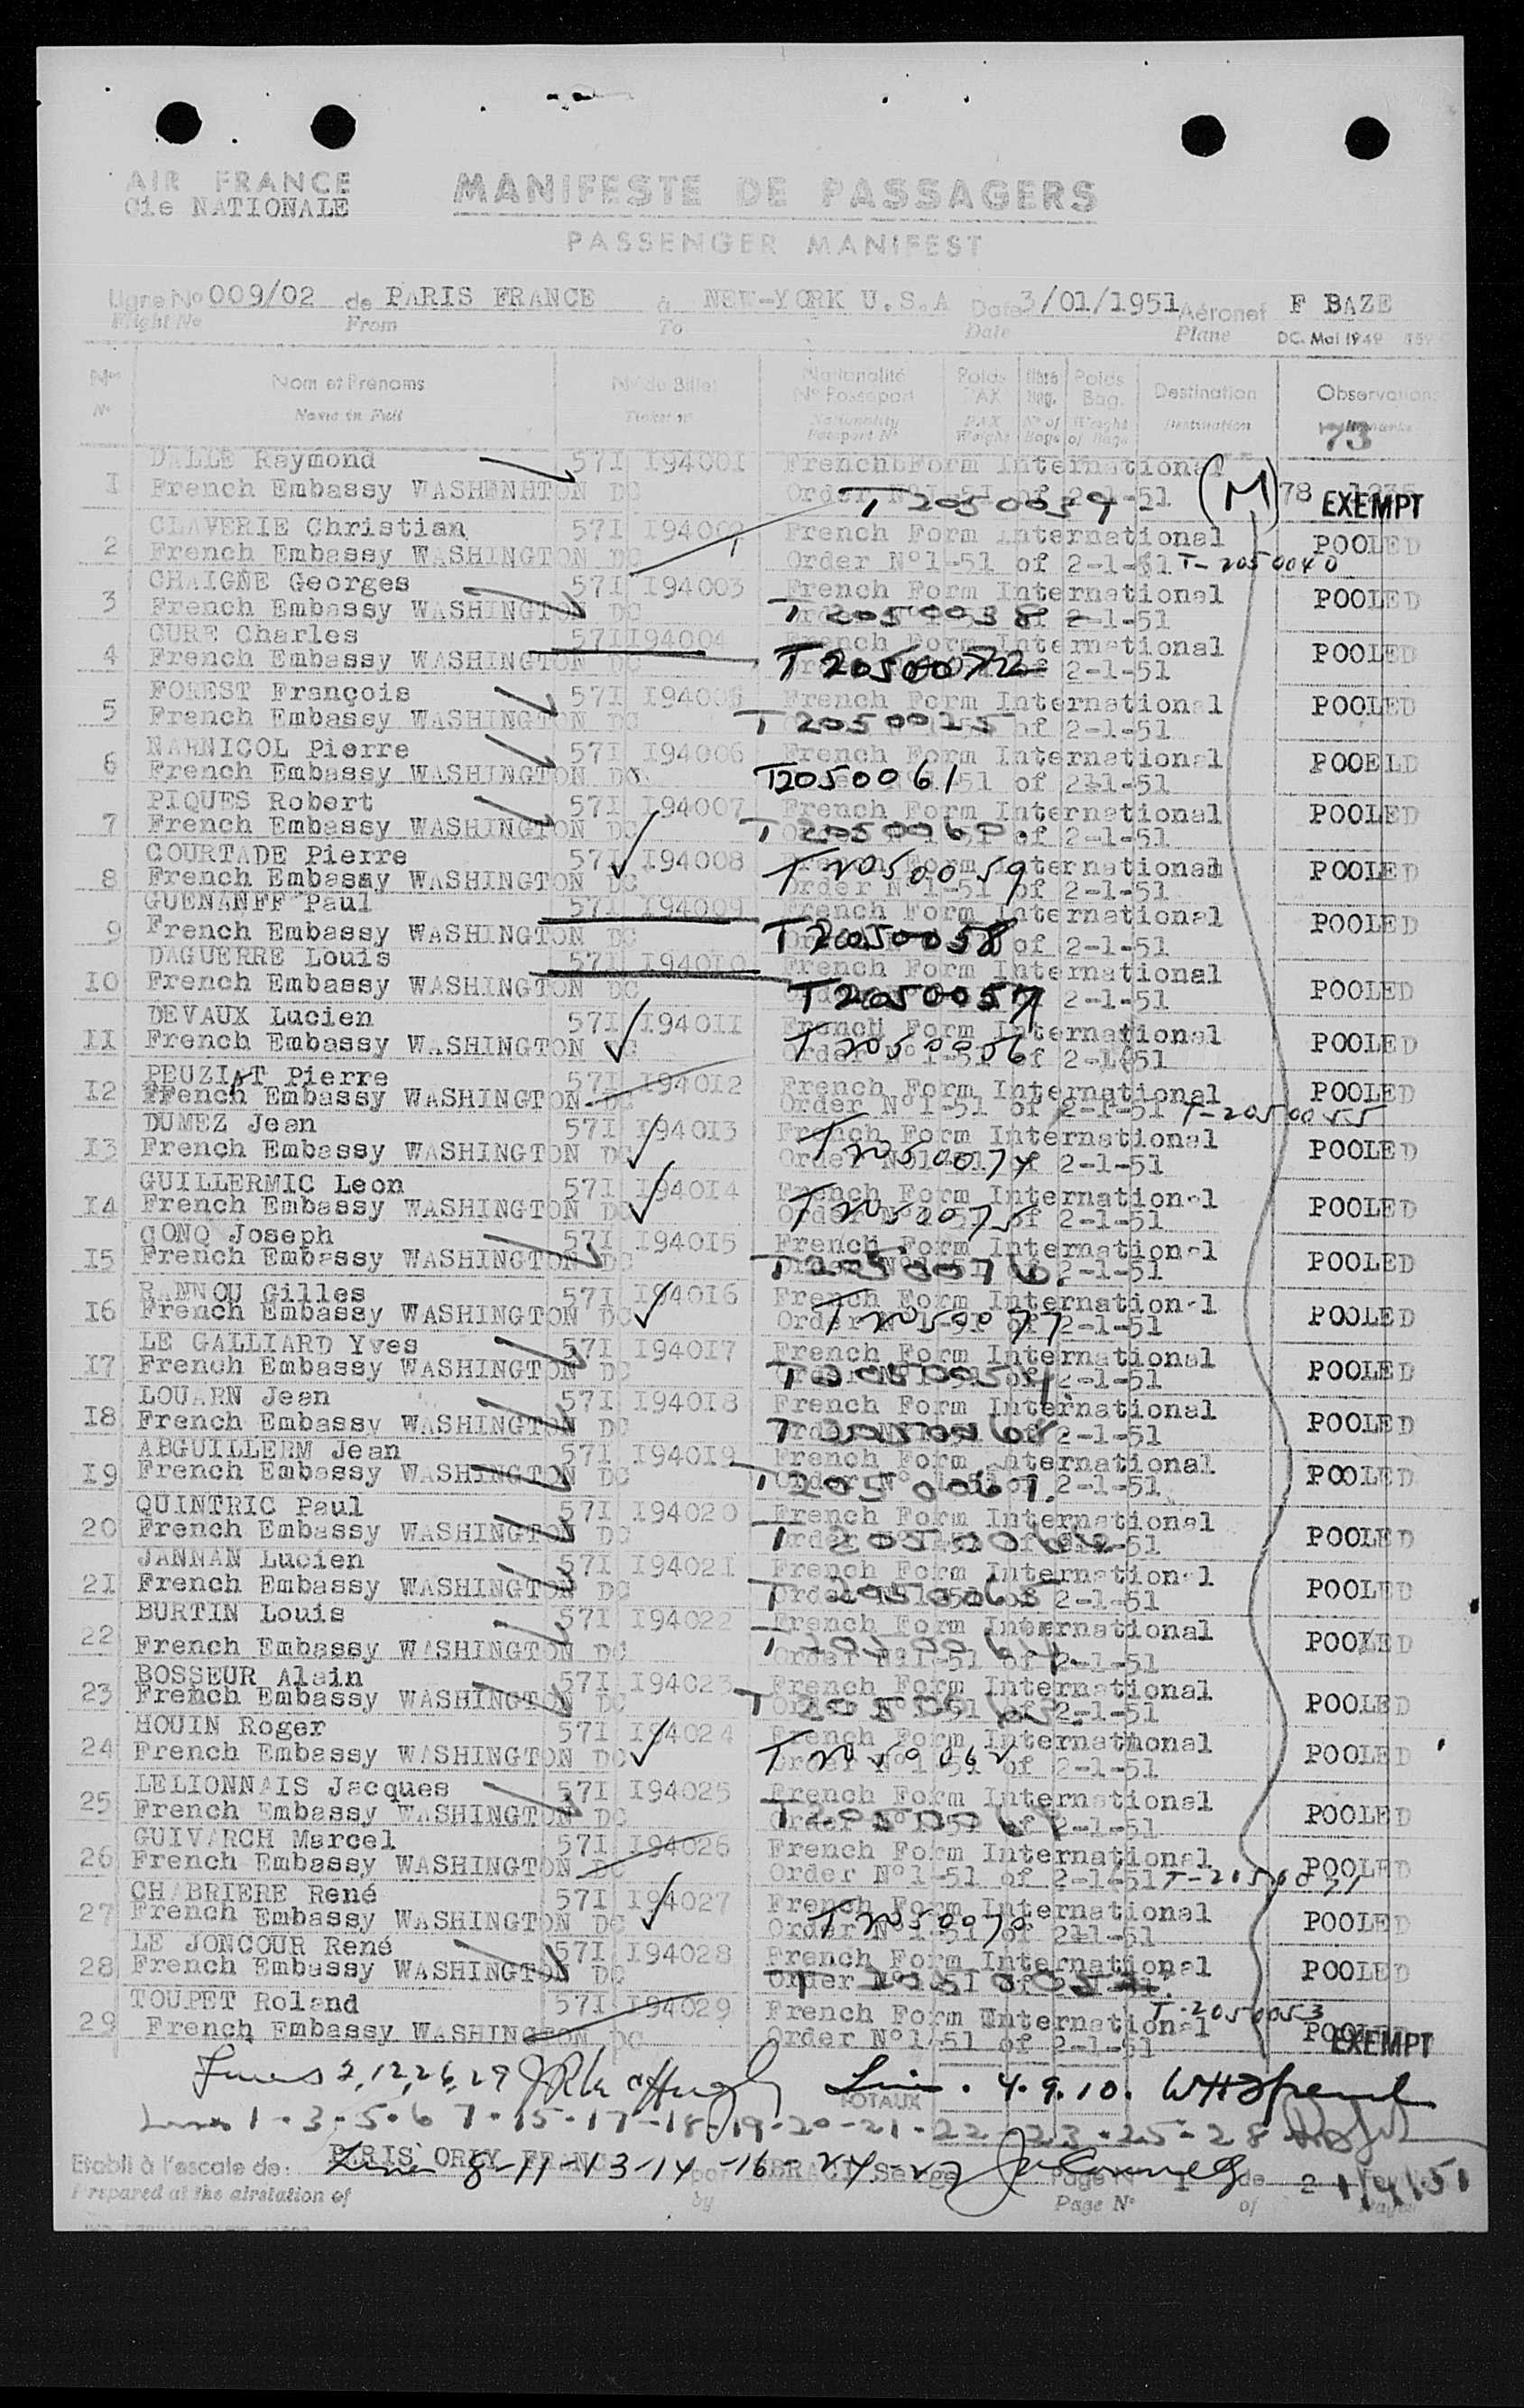 AIR FRANCE
Cie NATIONALE
MANIFESTE DE PASSAGERS
PASSENGER MANIFEST
Ligne No 009/02 de PARIS FRANCE à NEW-YORK U.S.A Date 3/01/1951 Aéronef F BAZE
Flight No From To Date Plane DC. Mai 1949
Nos Nom et Prénoms No du Billet Nationalité No Passeport Poids PAX Nbre Bag. Poids Bag. Destination Observations
No Name in Full Ticket no Nationality Passport No PAX Weight No of Bags Weight of Bags Destination Remarks
73
DALLE Raymond 571 194001 French Form International
1 French Embassy WASHENHTON DC Order No1-51 of 2-1-51 T 2050039 (M) 78 EXEMPT
CLAVERIE Christian 571 194002 French Form International POOLED
2 French Embassy WASHINGTON DC Order No1-51 of 2-1-51 T-2050040
CHAIGNE Georges 571 194003 French Form International POOLED
3 French Embassy WASHINGTON DC T 2050038 2-1-51
CURE Charles 571194004 French Form International POOLED
4 French Embassy WASHINGTON DC T 2050072 2-1-51
FOREST François 571 194005 French Form International POOLED
5 French Embassy WASHINGTON DC T 2050025 of 2-1-51
NARNICOL Pierre 571 194006 French Form International POOELD
6 French Embassy WASHINGTON DC T2050061 51 of 2-1-51
PIQUES Robert 571 194007 French Form International POOLED
7 French Embassy WASHINGTON DC T 2050060 of 2-1-51
COURTADE Pierre 571 194008 French Form International POOLED
8 French Embassy WASHINGTON DC T 2050059 Order No 1-51 of 2-1-51
GUENANFF Paul 571 194009 French Form International POOLED
9 French Embassy WASHINGTON DC T 2050058 of 2-1-51
DAGUERRE Louis 571 194010 French Form International
10 French Embassy WASHINGTON DC T 2050057 2-1-51 POOLED
DEVAUX Lucien 571 194011 French Form International
11 French Embassy WASHINGTON DC T 2050056 Order No1-51 of 2-1-51 POOLED
PEUZIAT Pierre 571 194012 French Form International POOLED
12 French Embassy WASHINGTON DC Order No1-51 of 2-1-51 T-2050055
DUMEZ Jean 571 194013 French Form International
13 French Embassy WASHINGTON DC T 2050074 of 2-1-51 POOLED
GUILLERMIC Leon 571 194014 French Form International
14 French Embassy WASHINGTON DC T 2050075 of 2-1-51 POOLED
CONQ Joseph 571 194015 French Form International
15 French Embassy WASHINGTON DC T 2050076 2-1-51 POOLED
RANNOU Gilles 571 194016 French Form International
16 French Embassy WASHINGTON DC T 2050077 2-1-51 POOLED
LE GALLIARD Yves 571 194017 French Form International
17 French Embassy WASHINGTON DC 2-1-51 POOLED
LOUARN Jean 571 194018 French Form International
18 French Embassy WASHINGTON DC T 2050068 2-1-51 POOLED
ABGUILLERM Jean 571 194019 French Form International
19 French Embassy WASHINGTON DC T 2050067. 2-1-51 POOLED
QUINTRIC Paul 571 194020 French Form International
20 French Embassy WASHINGTON DC T 2050066 POOLED
JANNAN Lucien 571 194021 French Form International
21 French Embassy WASHINGTON DC T 2050065 2-1-51 POOLED
BURTIN Louis 571 194022 French Form International
22 French Embassy WASHINGTON DC T 2050064 Order No1-51 of 2-1-51 POOLED
BOSSEUR Alain 571 194023 French Form International
23 French Embassy WASHINGTON DC T 2050063. 2-1-51 POOLED
HOUIN Roger 571 194024 French Form International
24 French Embassy WASHINGTON DC T 2050062 Order No1-51 of 2-1-51 POOLED
LELIONNAIS Jacques 571 194025 French Form International
25 French Embassy WASHINGTON DC 2-1-51 POOLED
GUIVARCH Marcel 571 194026 French Form International
26 French Embassy WASHINGTON DC Order No1-51 of 2-1-51 T-2050071 POOLED
CHABRIERE René 571 194027 French Form International
27 French Embassy WASHINGTON DC T 2050070 Order No1-51 of 2-1-51 POOLED
LE JONCOUR René 571 194028 French Form International
28 French Embassy WASHINGTON DC POOLED
TOUPET Roland 571 194029 French Form International T-2050053
29 French Embassy WASHINGTON DC Order No1-51 of 2-1-51 POOLED EXEMPT
Lines 2, 12, 26, 29 Line. 4.9.10.
TOTAUX
Lines 1-3-5-6 7-15-17-18-19-20-21-22-23-25-28
Etabli à l'escale de: PARIS ORLY FRANCE Lines 8-11-13-14-16-24-27 par Page No 1 de 2
Prepared at the airstation of by Page No of 1/4/51